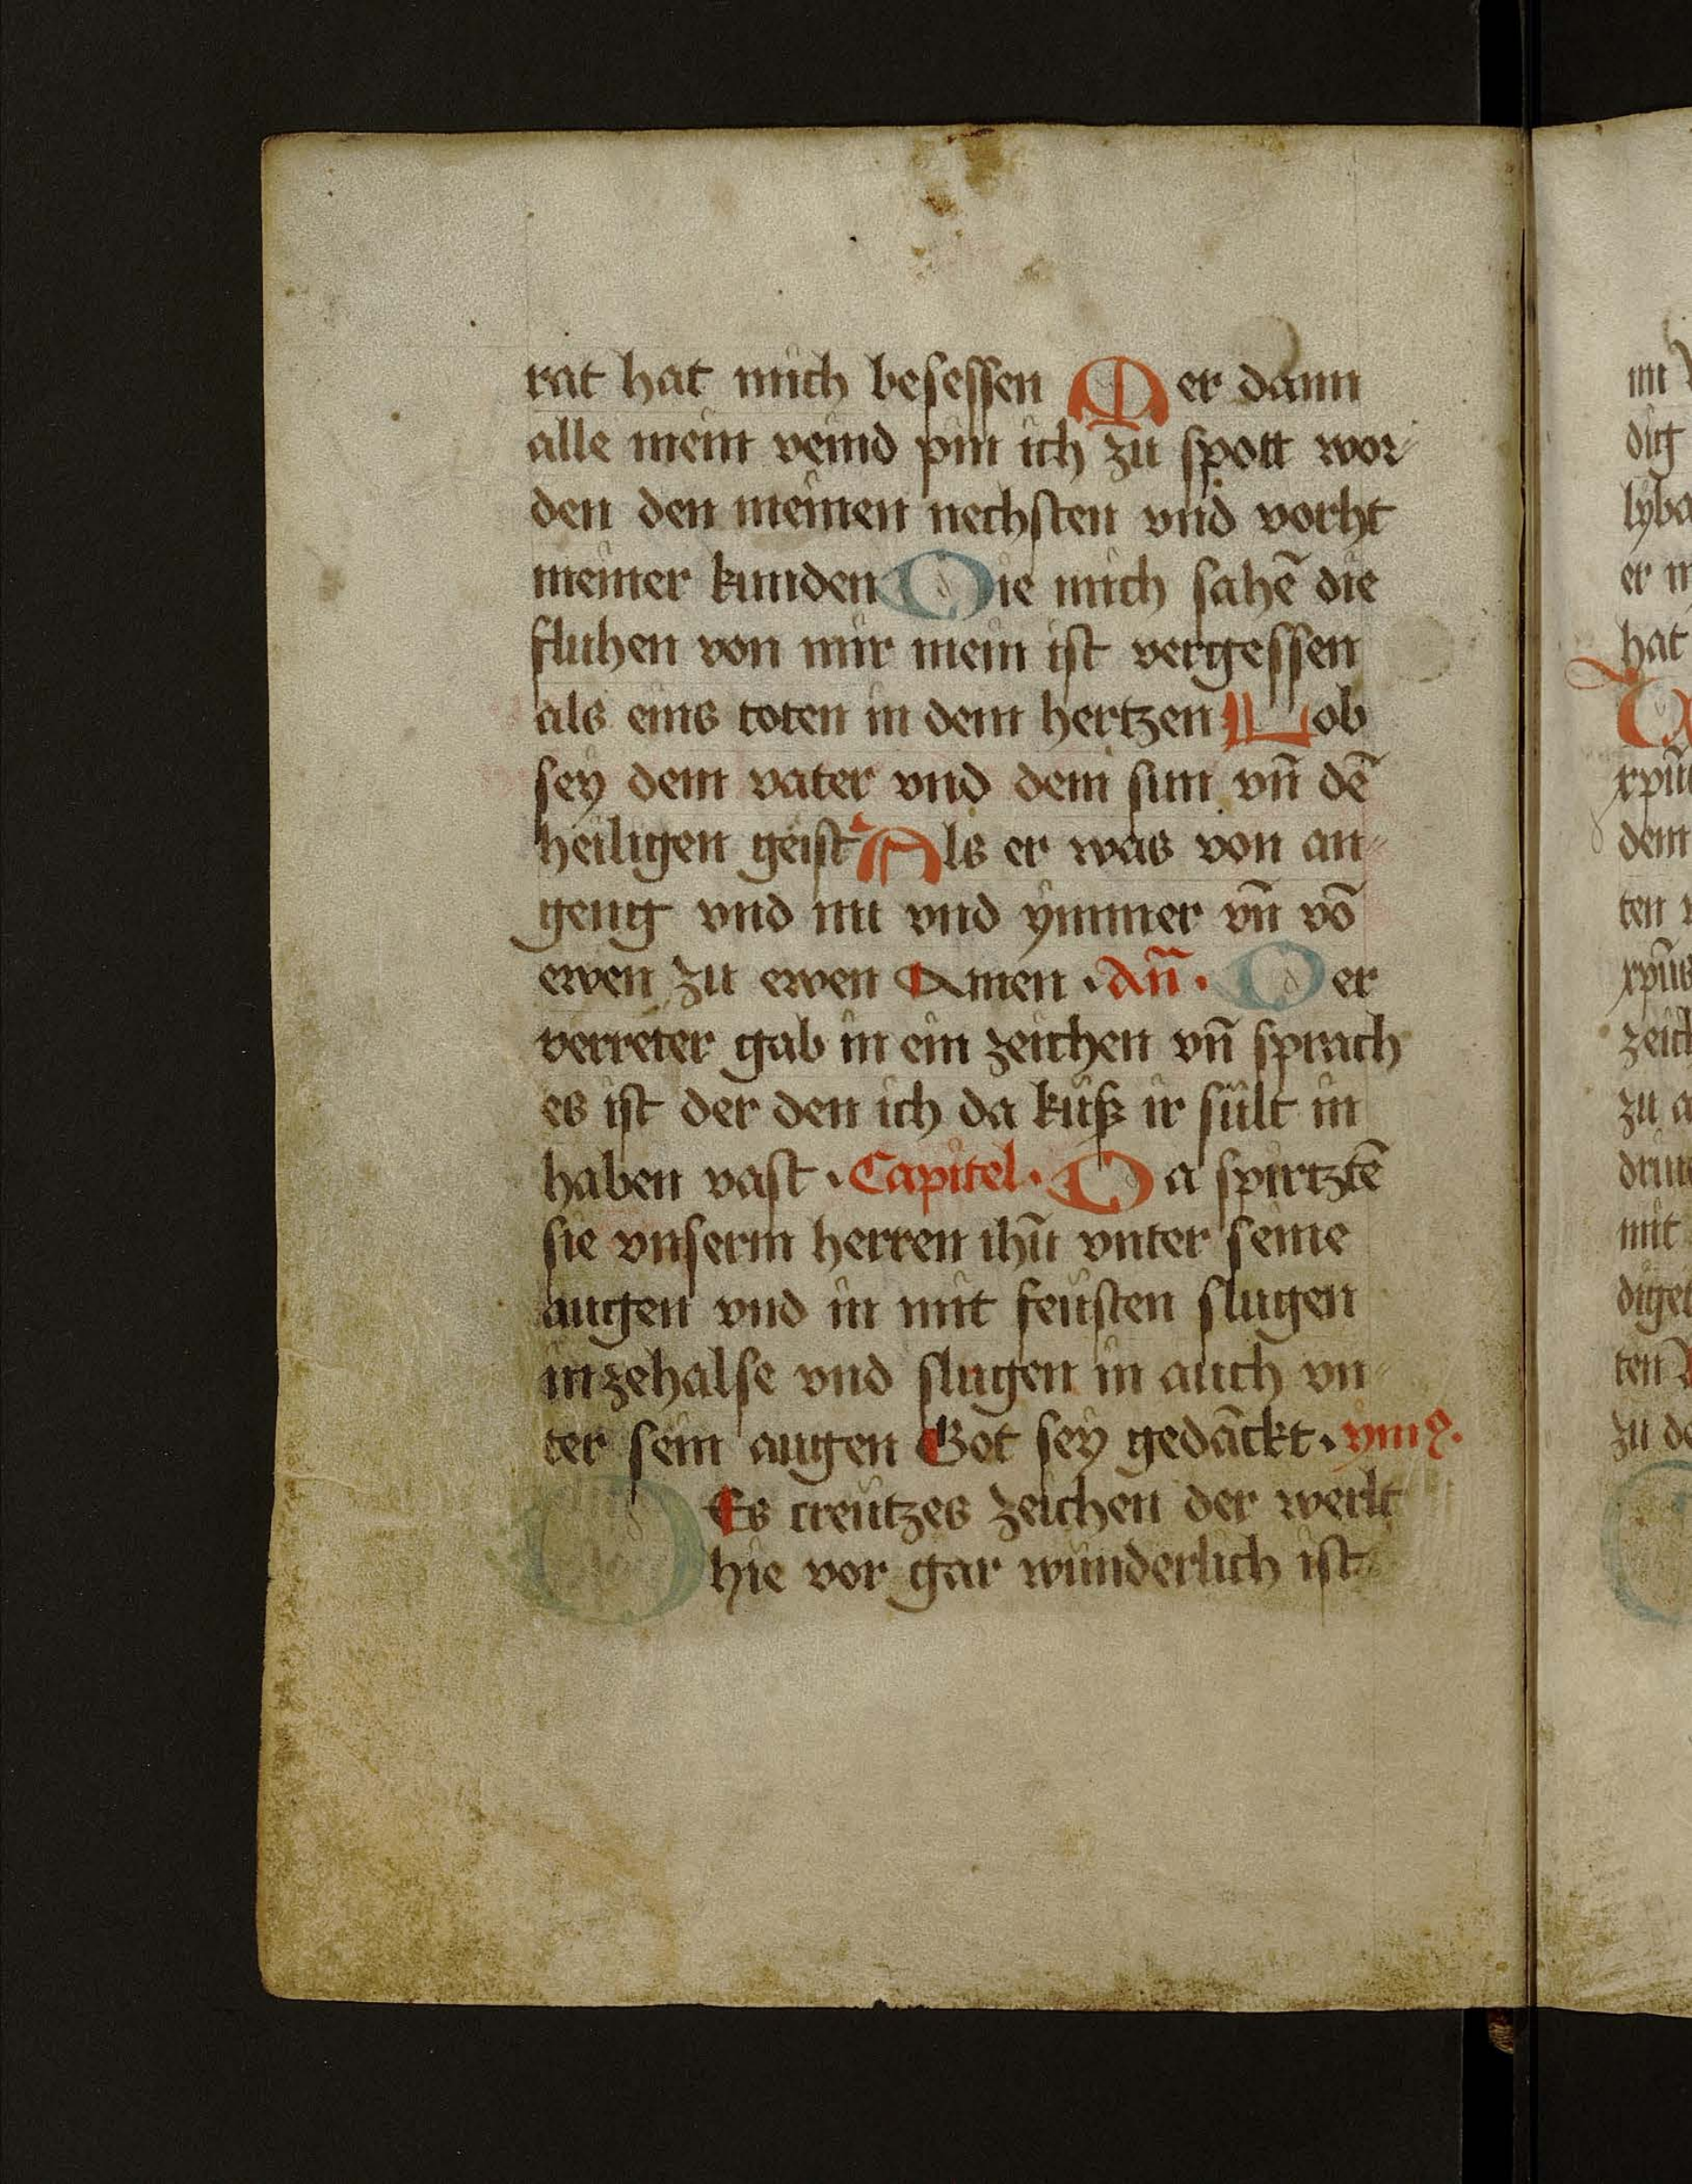 rat hat mich besessen Mer dann
alle mein veind pin ich zu spott wor-
den den meinen nechsten vnd vorht
meiner kunden Die mich sahē die
fluhen von mir mein ist vergessen
als eins toten in dem hertzen Lob
sey dem vater vnd dem sun vn̄ dē
heiligen geist Als er was von an-
geng vnd nu vnd ymmer vn̄ vō
ewen zu ewen Amen · An̄ · Der
verreter gab in ein zeichen vn̄ sprach
es ist der den ich da küß ir sült in
haben vast · Capitel · Da spirtztē
sie vnserm herren ihū vnter seine
augen vnd in mit feüsten slugen
in zehalse vnd slugen in auch vn-
ter sein augen Got sey gedāckt · ymꝰ ·
DEs creützes zeichen der werlt
hie vor gar wunderlich ist